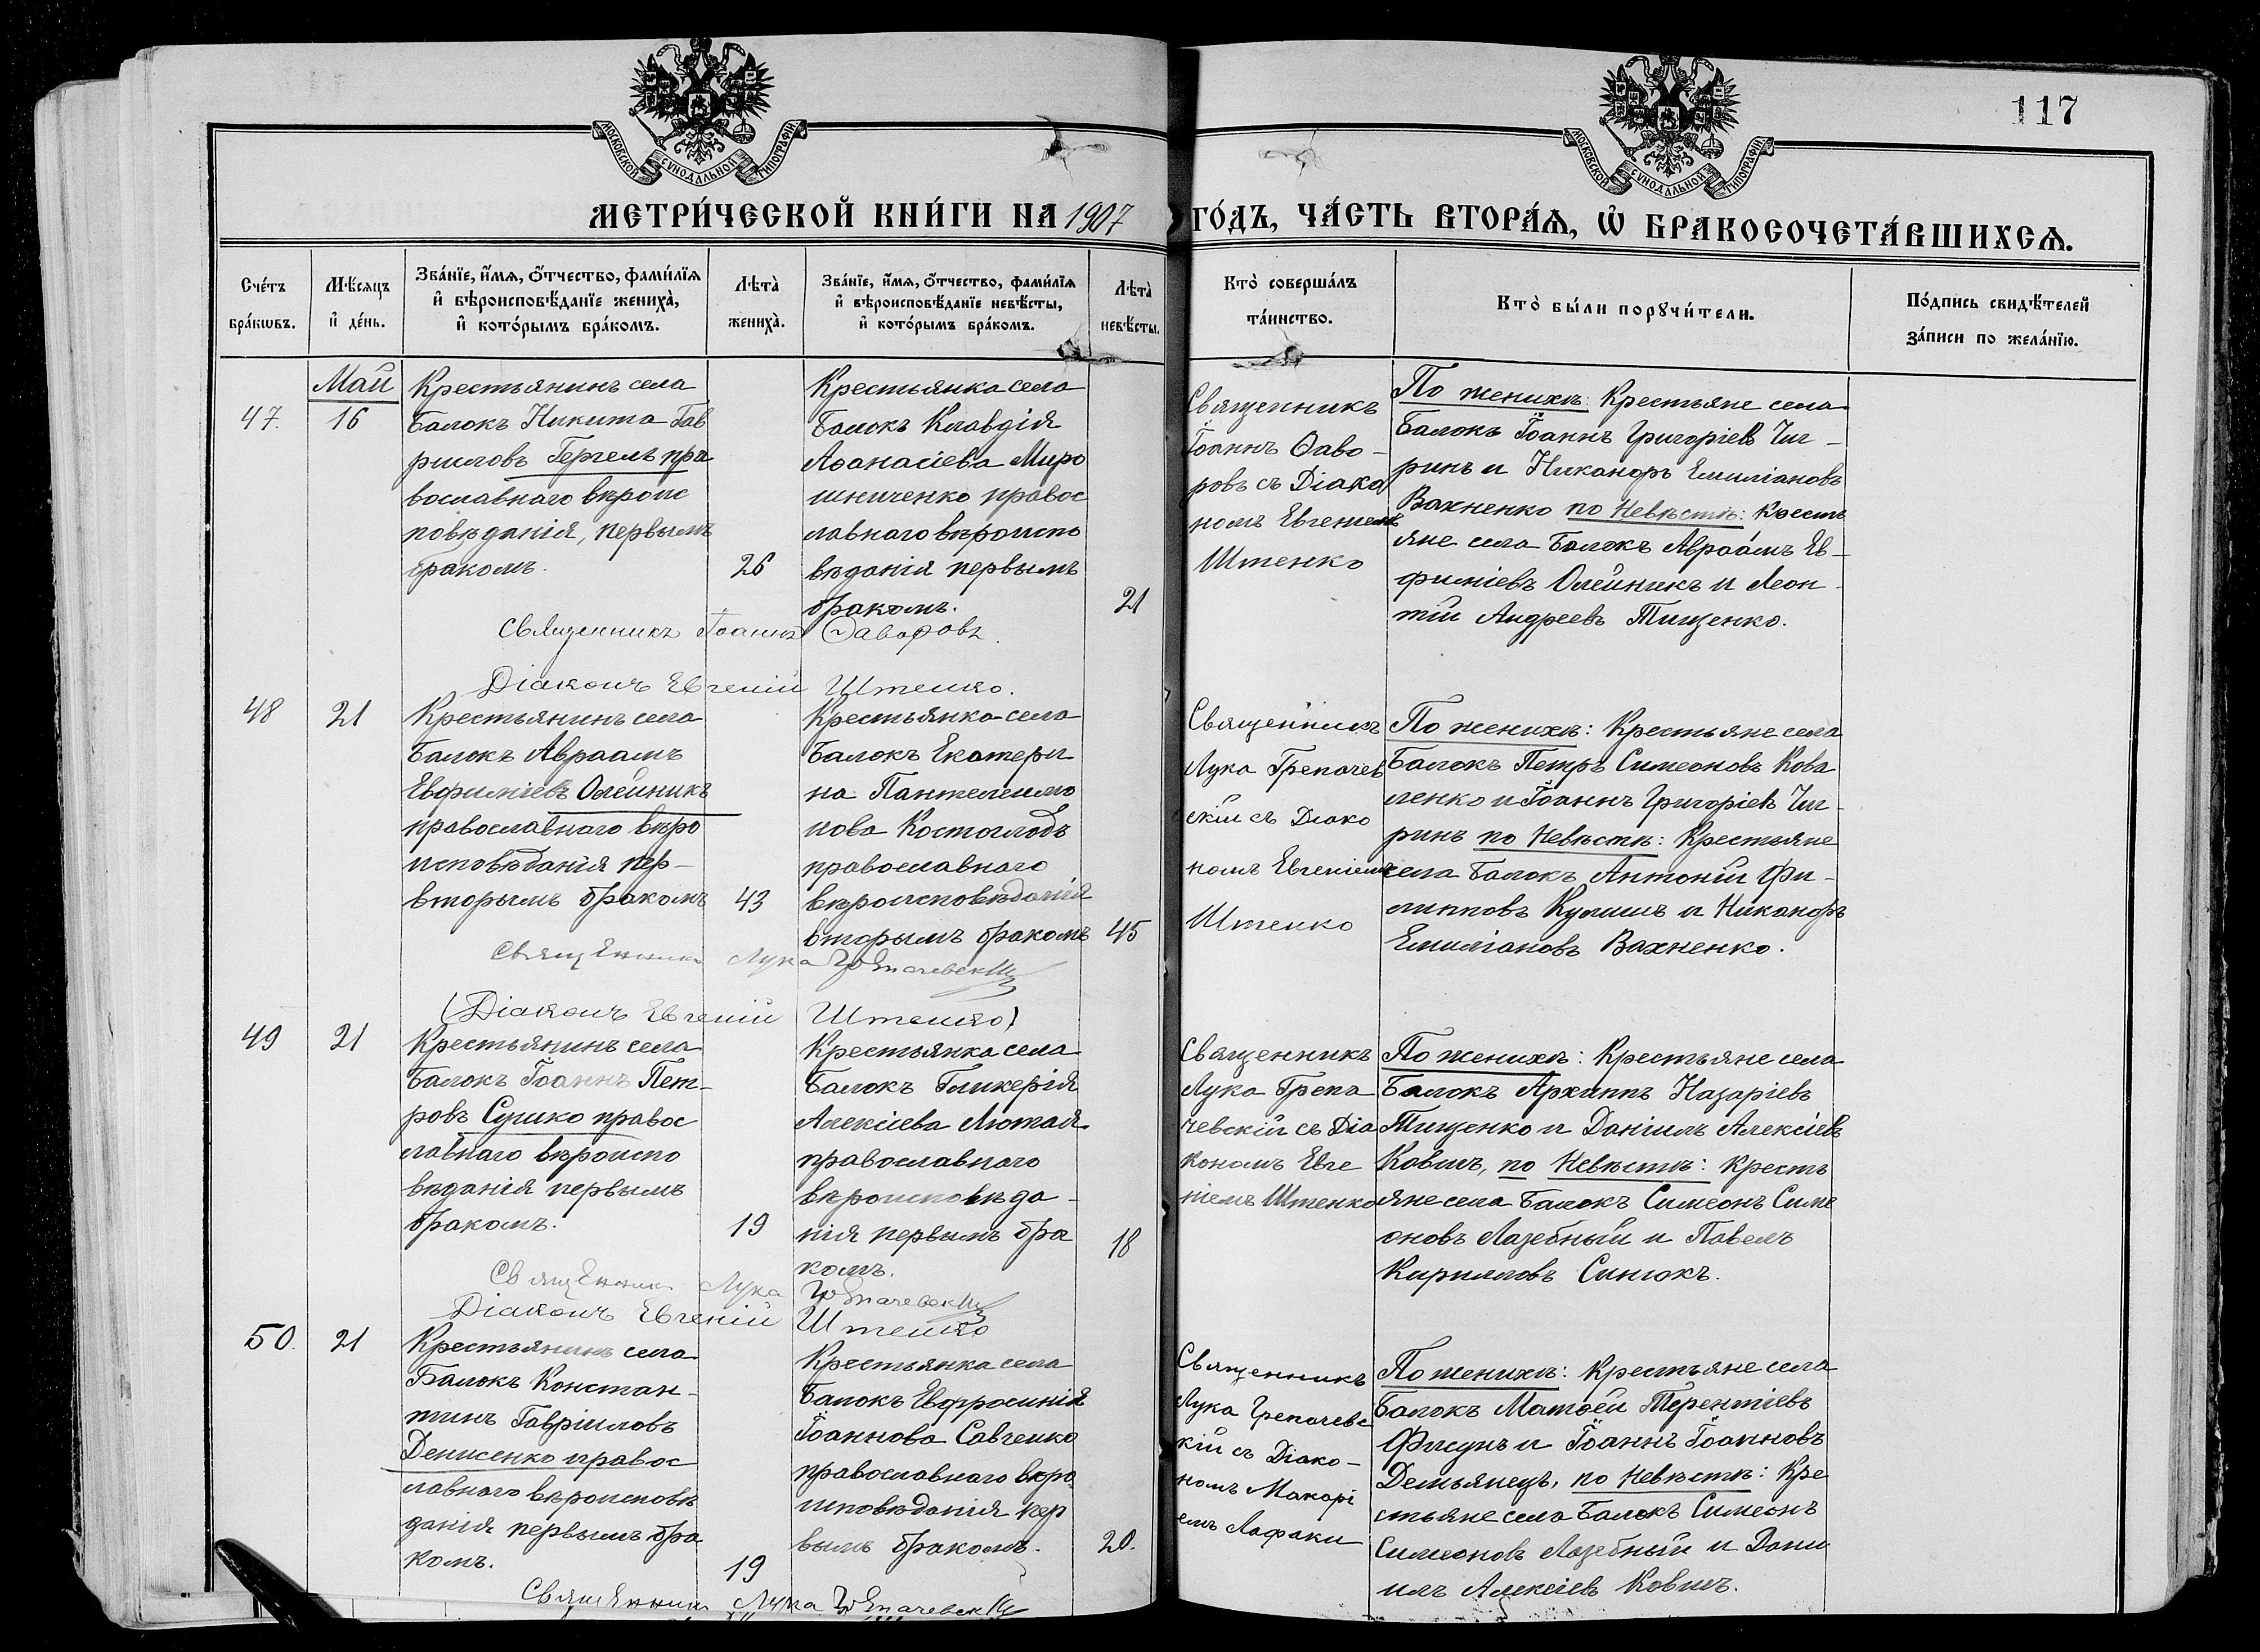 117
МОСКОВСКОЙ СѴНОДАЛЬНОЙ ТИПОГРАФІИ
МОСКОВСКОЙ СѴНОДАЛЬНОЙ ТИПОГРАФІИ
МЕТРИ́ЧЕСКОЙ КНИ́ГИ НА 1907 ГО́ДЪ, ЧА́СТЬ ВТОРА́Ѧ, Ѡ҆ БРАКОСОЧЕТА́ВШИХСѦ.
Сче́тъ
бра́кѡвъ.
Мѣ́сяцъ
и҆ де́нь.
Зва́нїе, и҆́мѧ, ѻ҆́тчество, фами́лїѧ
и҆ вѣроисповѣ́данїе жениха̀,
и҆ кото́рымъ бра́комъ.
Лѣта̀
жениха̀.
Зва́нїе, и҆́мѧ, ѻ҆́тчество, фами́лїѧ
и҆ вѣроисповѣ́данїе невѣ́сты,
и҆ кото́рымъ бра́комъ.
Лѣта̀
невѣ́сты.
Кто̀ соверша́лъ
та́инство.
Кто̀ бы́ли порꙋчи́тели.
По́дпись свидѣ́телей
за́писи по жела́нїю.
Май
47.
16
Крестьянинъ села
Балокъ Никита Гав
рииловъ Гергель пра
вославнаго вѣроис
повѣданія, первымъ
бракомъ.
26
Крестьянка села
Балокъ Клавдія
Аѳанасіева Миро
шниченко правос
лавнаго вѣроиспо
вѣданія первымъ
бракомъ.
21
Священникъ
Іоаннъ Ѳаво-
ровъ съ Діако
номъ Евгеніемъ
Штенко
По женихѣ: Крестьяне села
Балокъ Іоаннъ Григоріевъ Чиг-
ринъ и Никаноръ Емиліановъ
Вахненко по Невѣстѣ: Кресть
яне села Балокъ Авраамъ Ев-
фиміевъ Олейникъ и Леон-
тій Андреевъ Тищенко.
Священникъ Іоаннъ Ѳаворовъ.
Діаконъ Евгеній Штенко.
48
21
Крестьянинъ села
Балокъ Авраамъ
Евфиміевъ Олейникъ
православнаго вѣро
исповѣданія пер-
вторымъ бракомъ
43
Крестьянка села
Балокъ Екатери
на Пантелеимо
нова Костоглодъ
православнаго
вѣроисповѣданія
вторымъ бракомъ
45
Священникъ
Лука Грепачев
скій съ Діако
номъ Евгеніемъ
Штенко
По женихѣ: Крестьяне села
Балокъ Петръ Симеоновъ Кова
ленко и Іоаннъ Григоріевъ Чиг-
ринъ по Невѣстѣ: Крестьяне
села Балокъ Антоній Фи-
липповъ Кулишъ и Никаноръ
Емиліановъ Вахненко.
Священникъ Лука Грепачевскій
Діаконъ Евгеній Штенко
49
21
Крестьянинъ села
Балокъ Іоаннъ Пет-
ровъ Сушко правос
лавнаго вѣроиспо
вѣданія первымъ
бракомъ.
19
Крестьянка села
Балокъ Гликерія
Алексіева Лютая
православнаго
вѣроисповѣда-
нія первымъ бра
комъ.
18
Священникъ
Лука Грепа
чевскій съ Діа
кономъ Евге
ніемъ Штенко
По женихѣ: Крестьяне села
Балокъ Архиппъ Назаріевъ
Тищенко и Даніилъ Алексіевъ
Ковшъ, по Невѣстѣ: Кресть
яне села Балокъ Симеонъ Симе
оновъ Лазебный и Павелъ
Кирилловъ Синюкъ.
Священникъ Лука Грепачевскій
Діаконъ Евгеній Штенко
50.
21
Крестьянинъ села
Балокъ Констан-
тинъ Гавріиловъ
Денисенко правос
лавнаго вѣроисповѣ
данія первымъ бра
комъ.
19
Крестьянка села
Балокъ Евфросинія
Іоаннова Савченко
православнаго вѣро
исповѣданія пер
вымъ бракомъ.
20.
Священникъ
Лука Грепачевс
кій съ Діако-
номъ Макарі
емъ Лафаки
По женихѣ: Крестьяне села
Балокъ Матѳей Терентіевъ
Фисунъ и Іоаннъ Іоанновъ
Демьянецъ, по Невѣстѣ: Кре
стьяне села Балокъ Симеонъ
Симеоновъ Лазебный и Дани
илъ Алексіевъ Ковшъ.
Священникъ Лука Грепачевскій